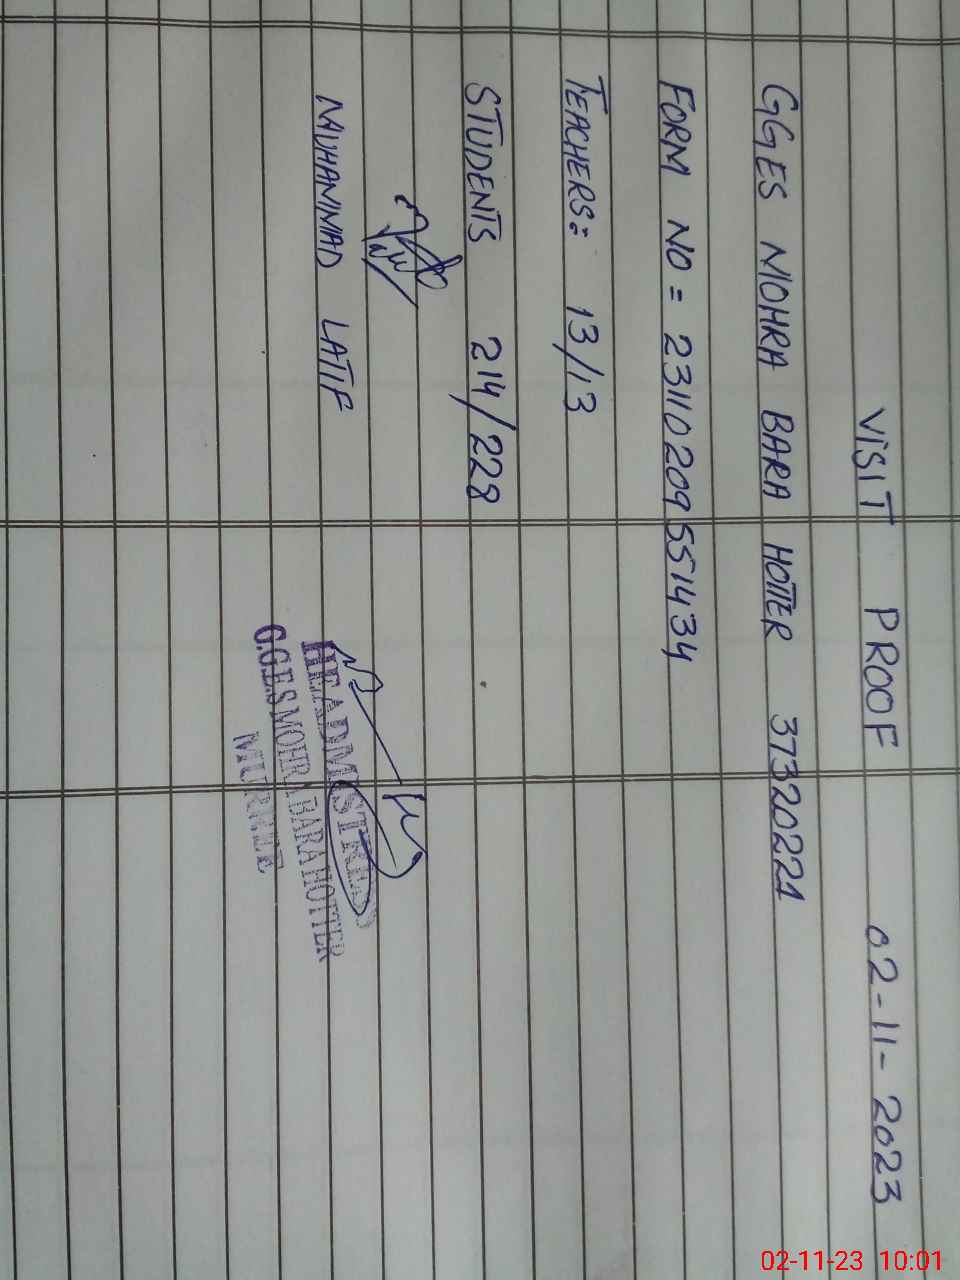 VISIT PROOF 02-11-2023
GGES MOHRA BARA HOTTER 37320221
FORM NO = 23110209551434
TEACHERS= 13/13
STUDENTS 214/228
MUHAMMAD LATIF
HEADMISTRESS
G.G.E.S MOHRA BARA HOTTER
MURREE
02-11-23 10:01